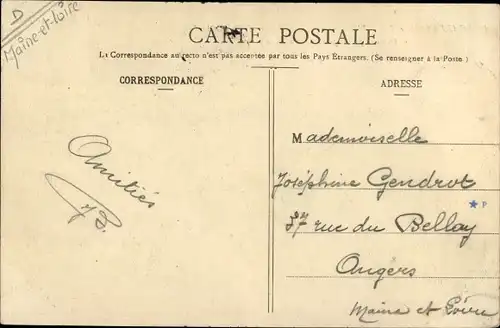 D
Maine-et-Loire
CARTE POSTALE
La Correspondance au recto n'est pas acceptée par tous les Pays Étrangers. (Se renseigner à la Poste.)
CORRESPONDANCE
Amitiés
ADRESSE
Mademoiselle
Joséphine Gendrot
rue du Bellay
Angers
Maine et Loire
P